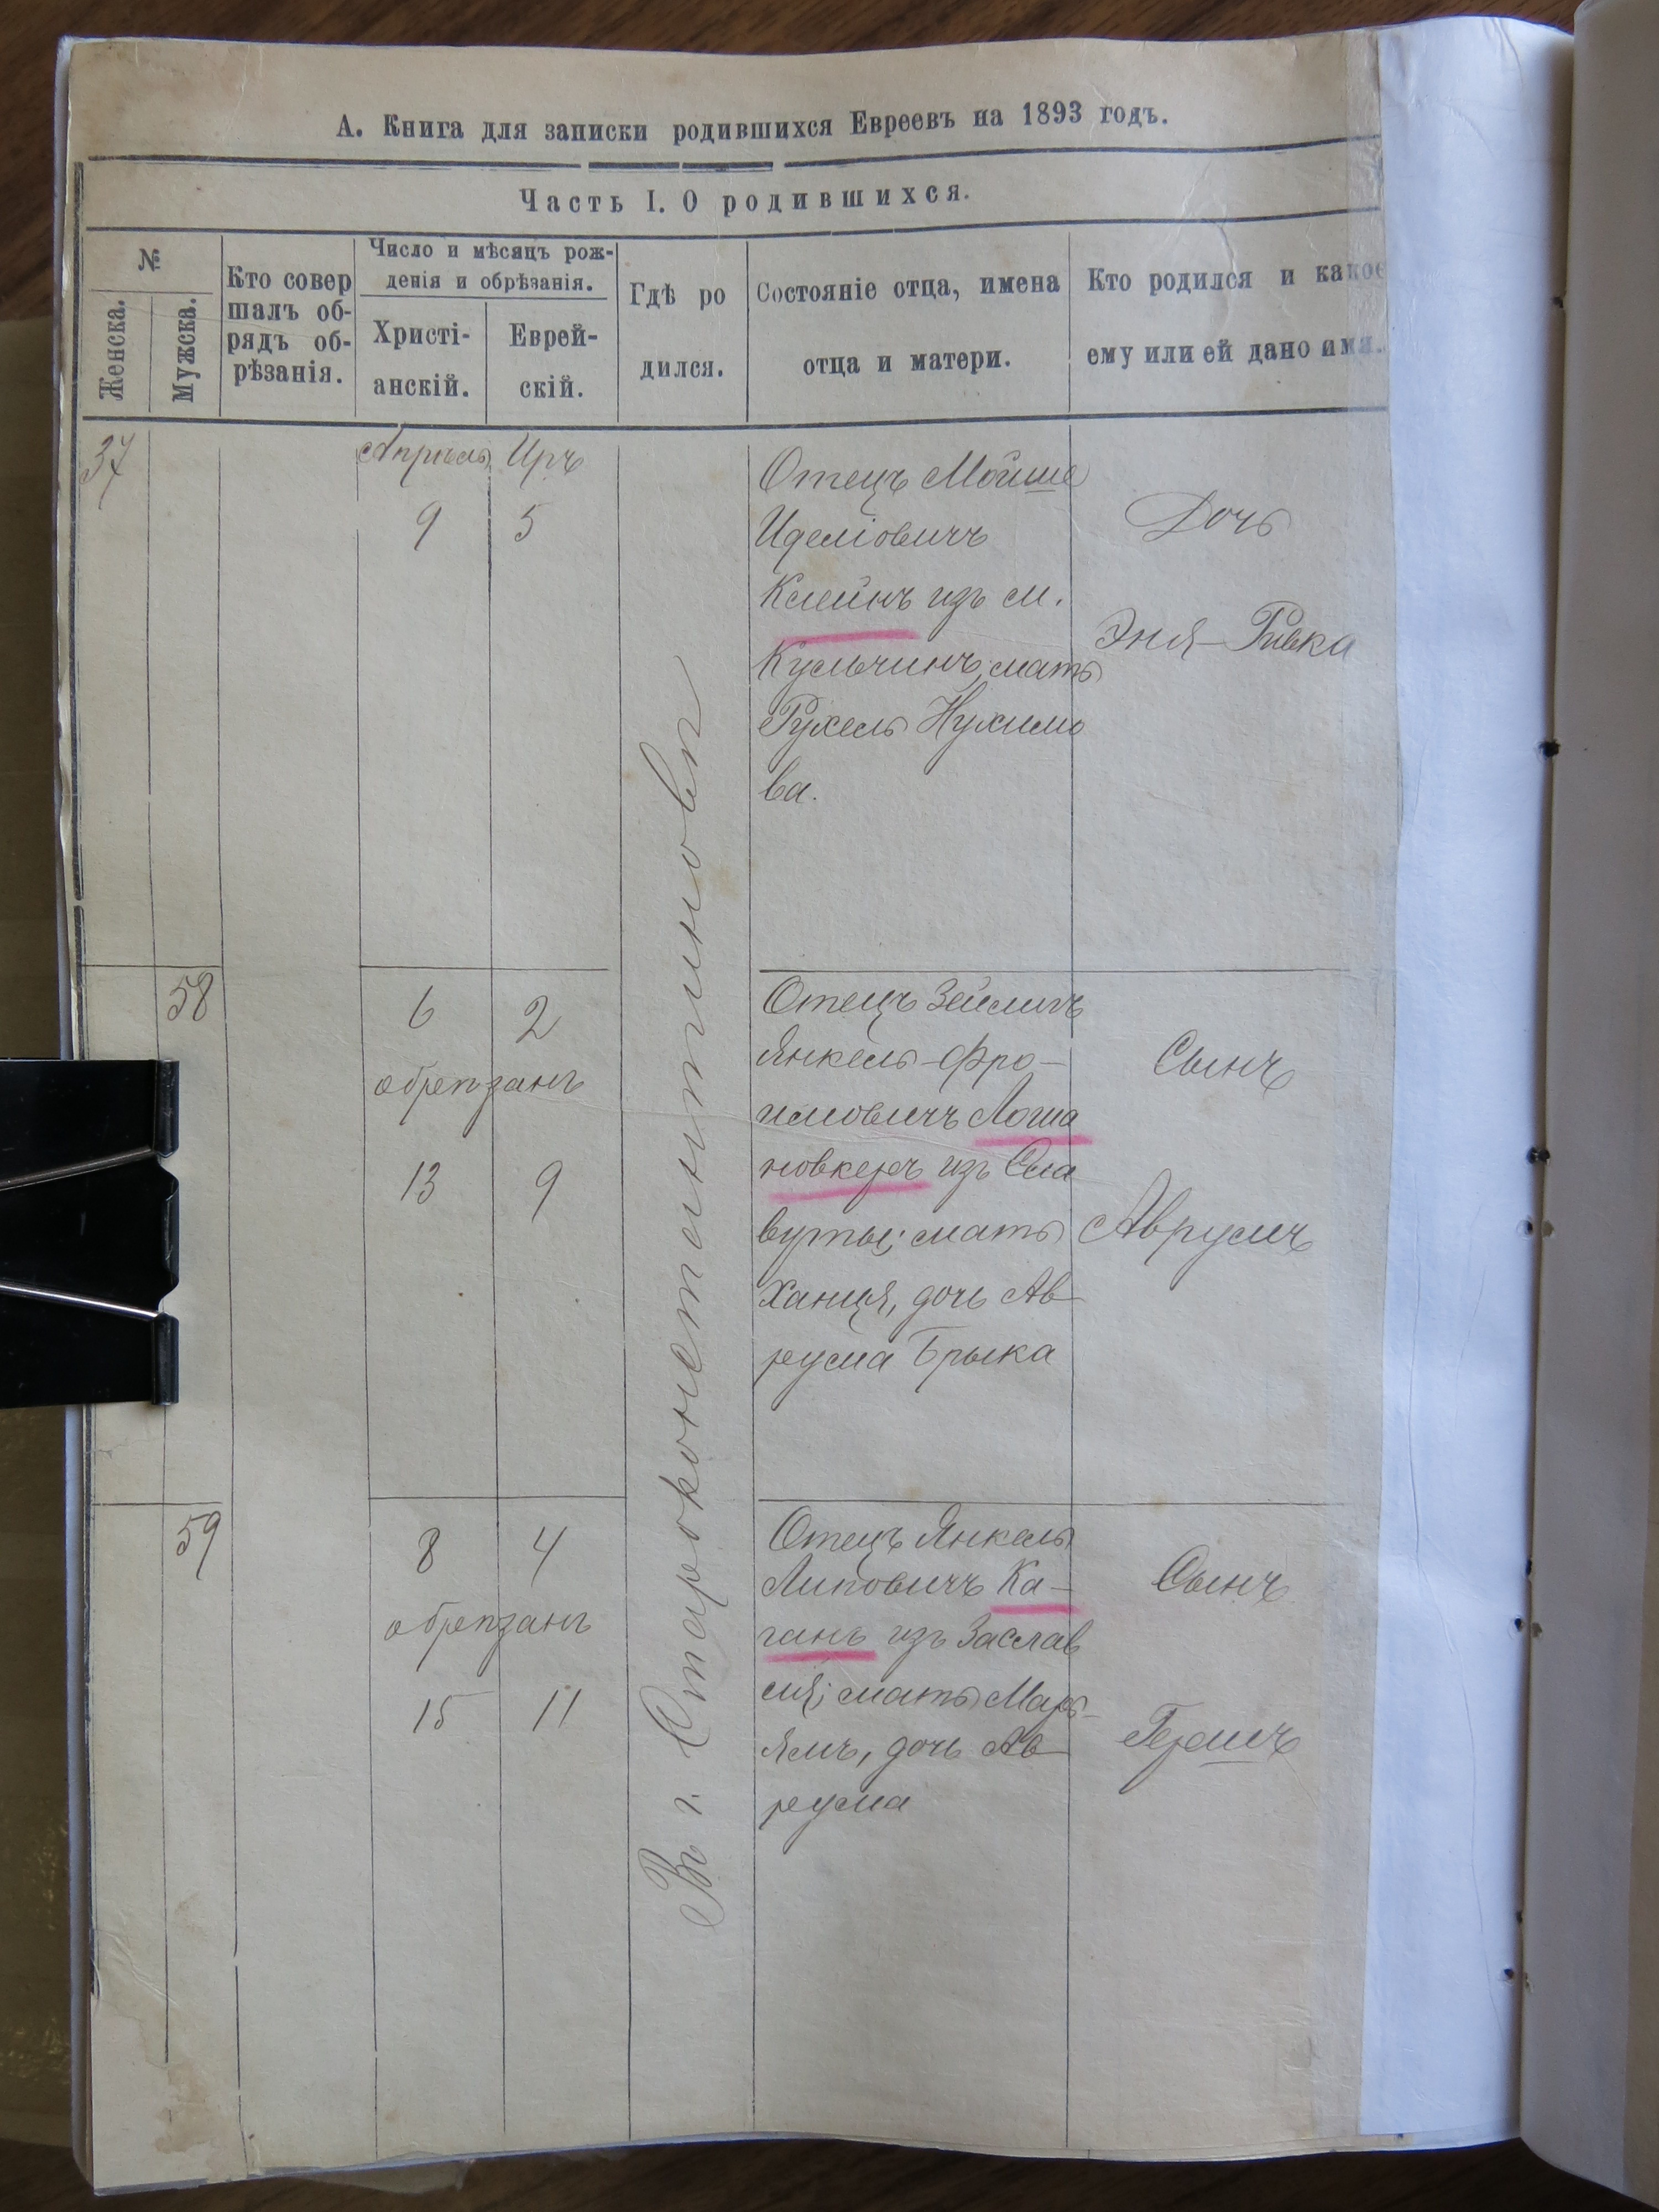 А. Книга для записки родившихся Евреевъ на 1893 годъ.
Часть I. О родившихся.
№
Женска.
Мужска.
Кто совер
шалъ об-
рядъ об-
рѣзанія.
Число и мѣсяцъ рож-
денія и обрѣзанія.
Христі-
анскій.
Еврей-
скій.
Гдѣ ро
дился.
Состояніе отца, имена
отца и матери.
Кто родился и какое
ему или ей дано имя.
37
Апрѣль
Иръ
9
5
Въ г. Староконстантиновѣ
Отецъ Мойше
Иделіовичъ
Клейнъ изъ м.
Кульчинъ, мать
Рухель Нухимо
ва.
Дочь
Эня-Ривка
58
6
2
обрѣзанъ
13
9
Отецъ Зейлигъ
Янкель-Фро-
имовичъ Лоша
новкеръ изъ Сла
вуты; мать
Ханця, дочь Ав-
рума Брыка
Сынъ
Аврумъ
59
8
4
обрѣзанъ
15
11
Отецъ Янкель
Липовичъ Ка-
ганъ изъ Заслав
ля; мать Марь-
ямъ, дочь Ав-
рума
Сынъ
Гершъ